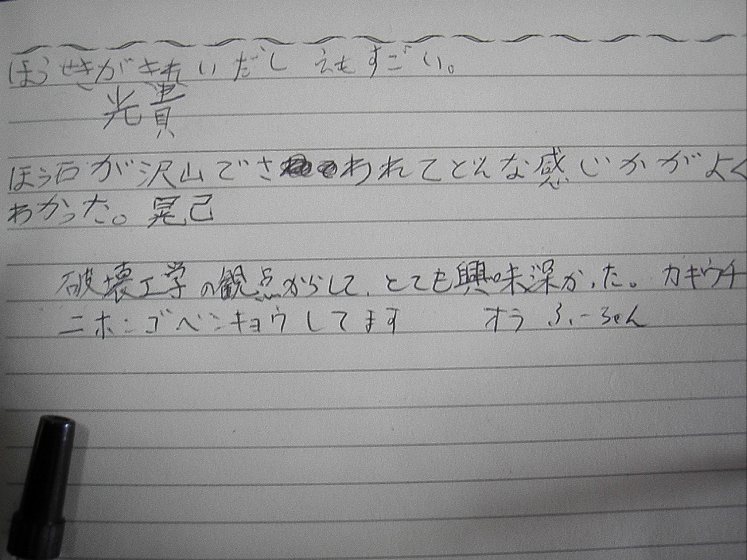 ほうせきがきれいだし えもすごい。
光貴
ほう石が沢山でさわれてどんな感じかがよく
わかった。晃己
破壊工学の観点からして、とても興味深かった。カキウチ
ニホンゴベンキョウしてます オラ ふぃーちゃん